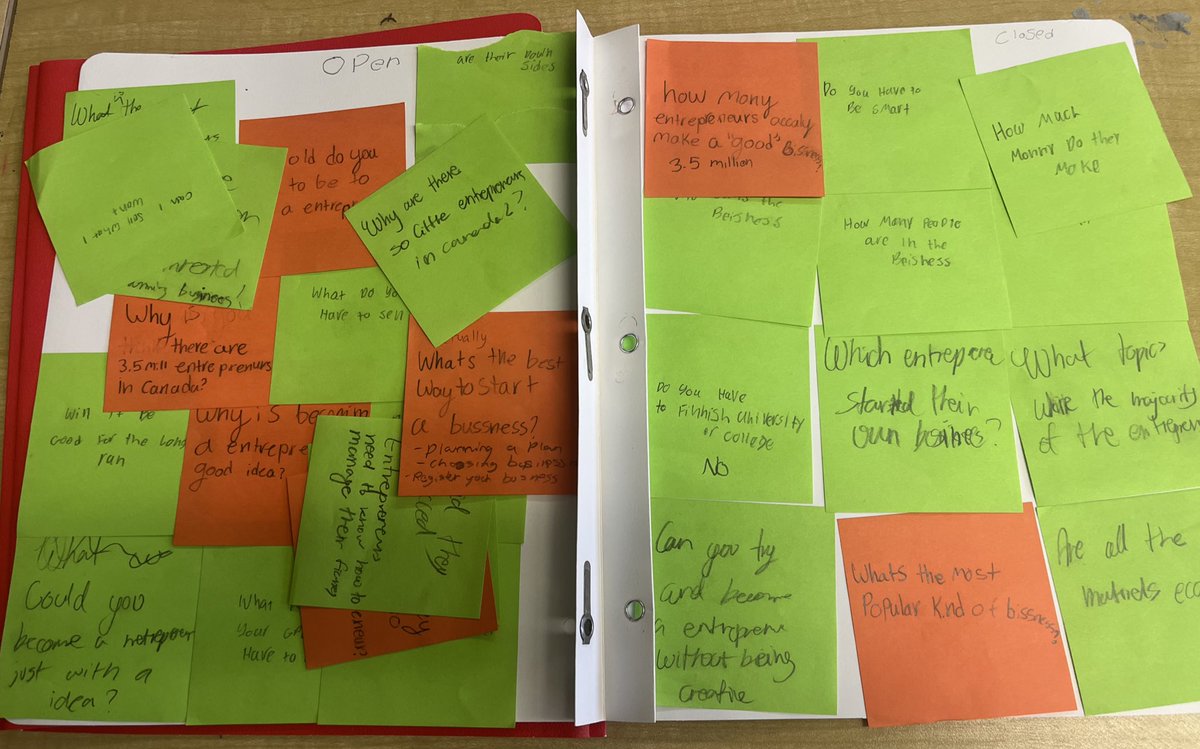 Open
are their Down
sides
What is the
can I sell what I
want
old do you
to be to
a entrepr
Why are there
so little entrepreneurs
in canada?
What Do yo
Have to sell
Why is
there are
3.5 mill entreprenurs
In Canada?
Whats the best
way to start
a bussness?
- planning a plan
- choosing business
- Register your business
Win it be
Good For the Long
ran
Why is becomin
a entrepre
good idea?
Entrepreneurs
need to know how to
manage their
What
Could you
become a
just with a
idea?
What
Your
Have to
Closed
how many
entrepreneurs accaly
make a "good" Bisiness?
3.5 million
Do You Have to
Be Smart
How Much
Monny Do they
Make
is the
Beishess
How Many People
are in the
Beishess
Do You Have
to Finnish University
or college
No
Which entrepera
started their
own
What topic?
the majority
of the entrepren
Can you try
and become
a entreprene
without being
creative
Whats the most
Popular kind of
Are all the